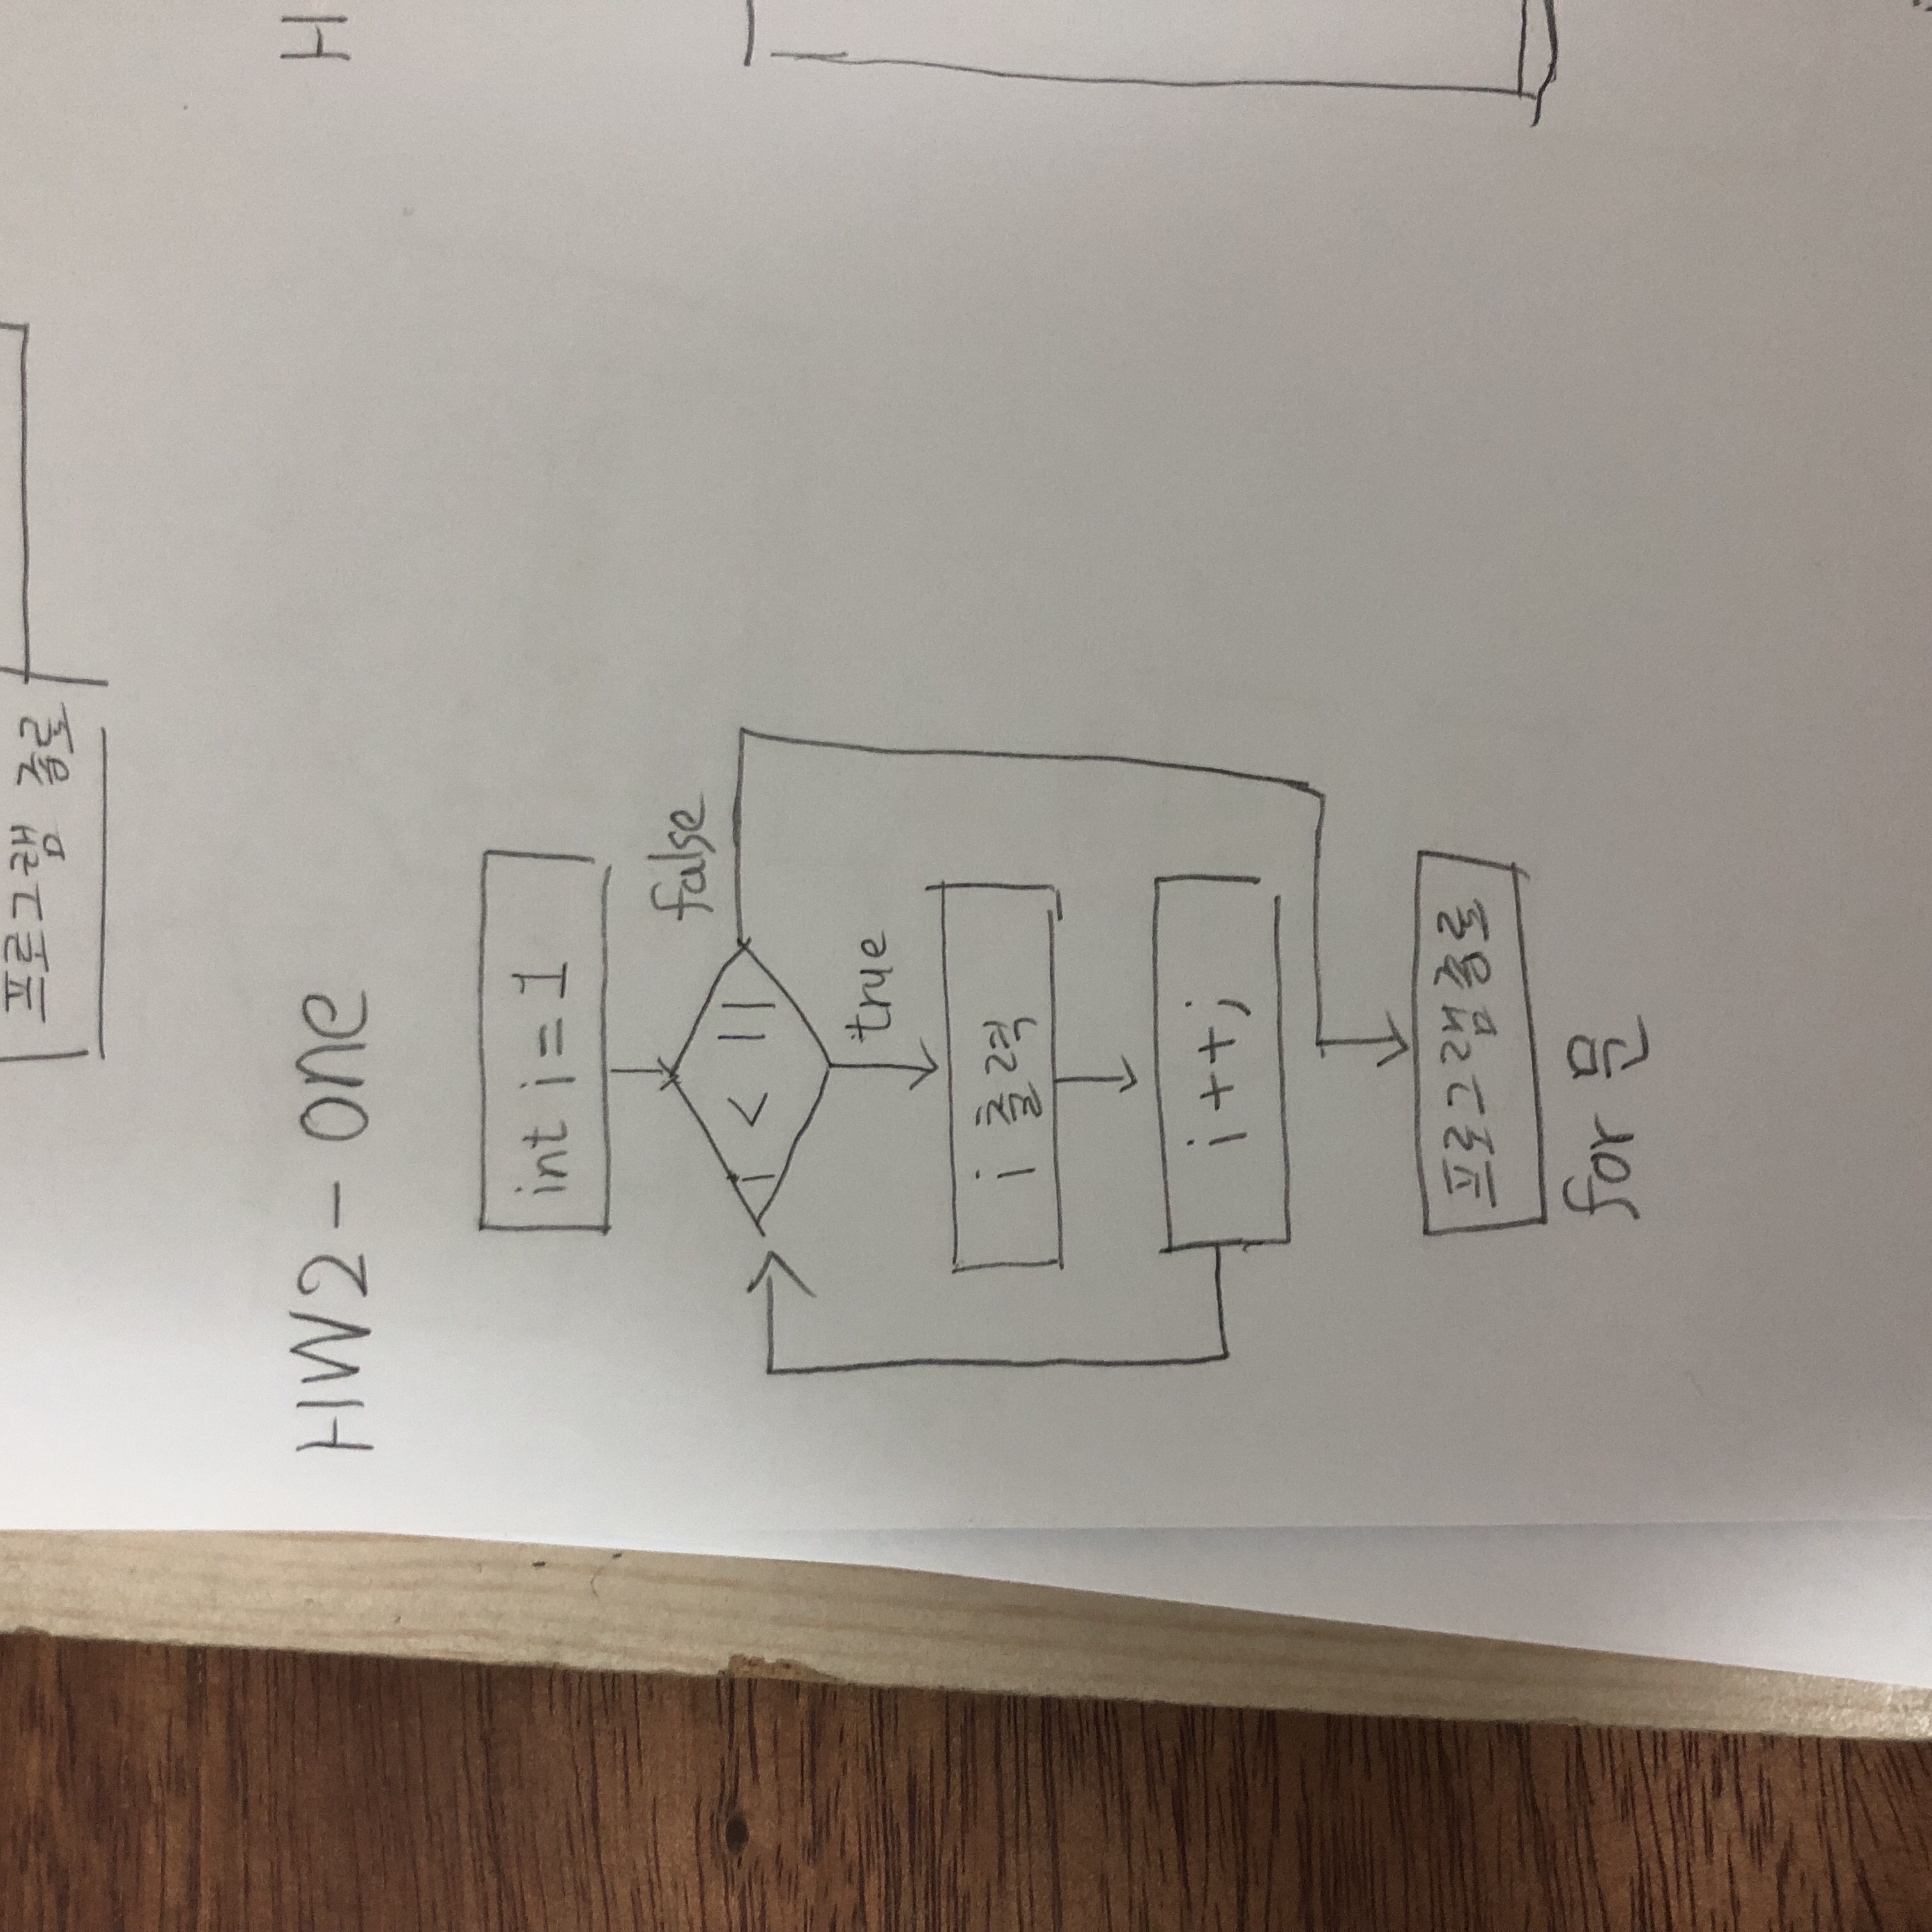 프로그램 종료
HW2 - one
H
int i = 1
false
i < 11
true
i 출력
i ++;
프로그램 종료
for 문